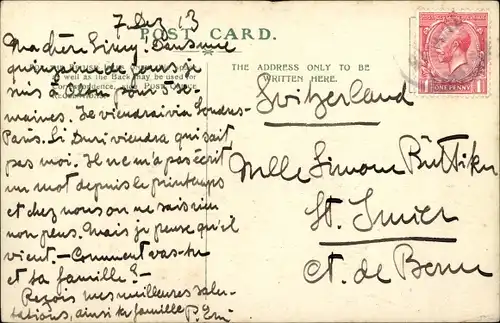 7 Dez 13
POST CARD.
Ma chère Simy. Dans une
quinzaine de jours je
suis à Sion pour 3 se-
well as the Back may be used for
maines. Je viendrai via Londres-
Paris. Si Duri viendra qui sait
pas moi. Il ne m'a pas écrit
un mot depuis le printemps
et chez nous on ne sais rien
non plus. Mais je pense qu'il
vient. – Comment vas-tu
et ta famille? –
Reçois mes meilleures salu-
tations, ainsi ta famille P.
THE ADDRESS ONLY TO BE
WRITTEN HERE.
ONE PENNY
Switzerland
Mlle Simone Büttiker
St. Imier
Ct. de Berne